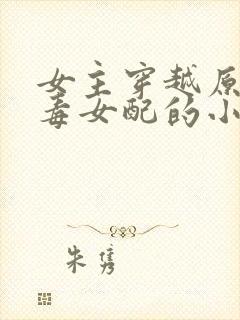 女主穿越原
毒女配的小
朱隽